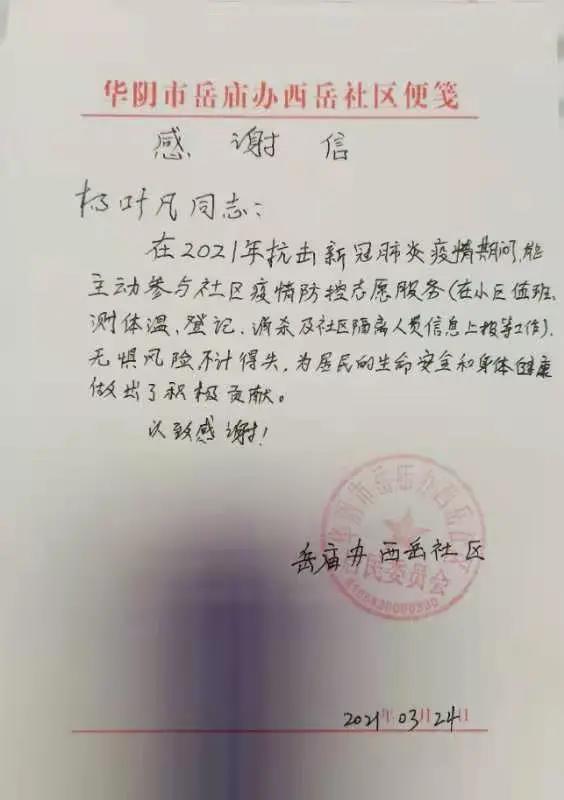 华阴市岳庙办西岳社区便笺
感谢信
杨叶凡同志：
在2021年抗击新冠肺炎疫情期间，能
主动参与社区疫情防控志愿服务（在小区值班、
测体温、登记、消杀及社区隔离人员信息上报等工作），
无惧风险不计得失，为居民的生命安全和身体健康
做出了积极贡献。
以致感谢！
华阴市岳庙办西岳社区
居民委员会
岳庙办西岳社区
2021年03月24日